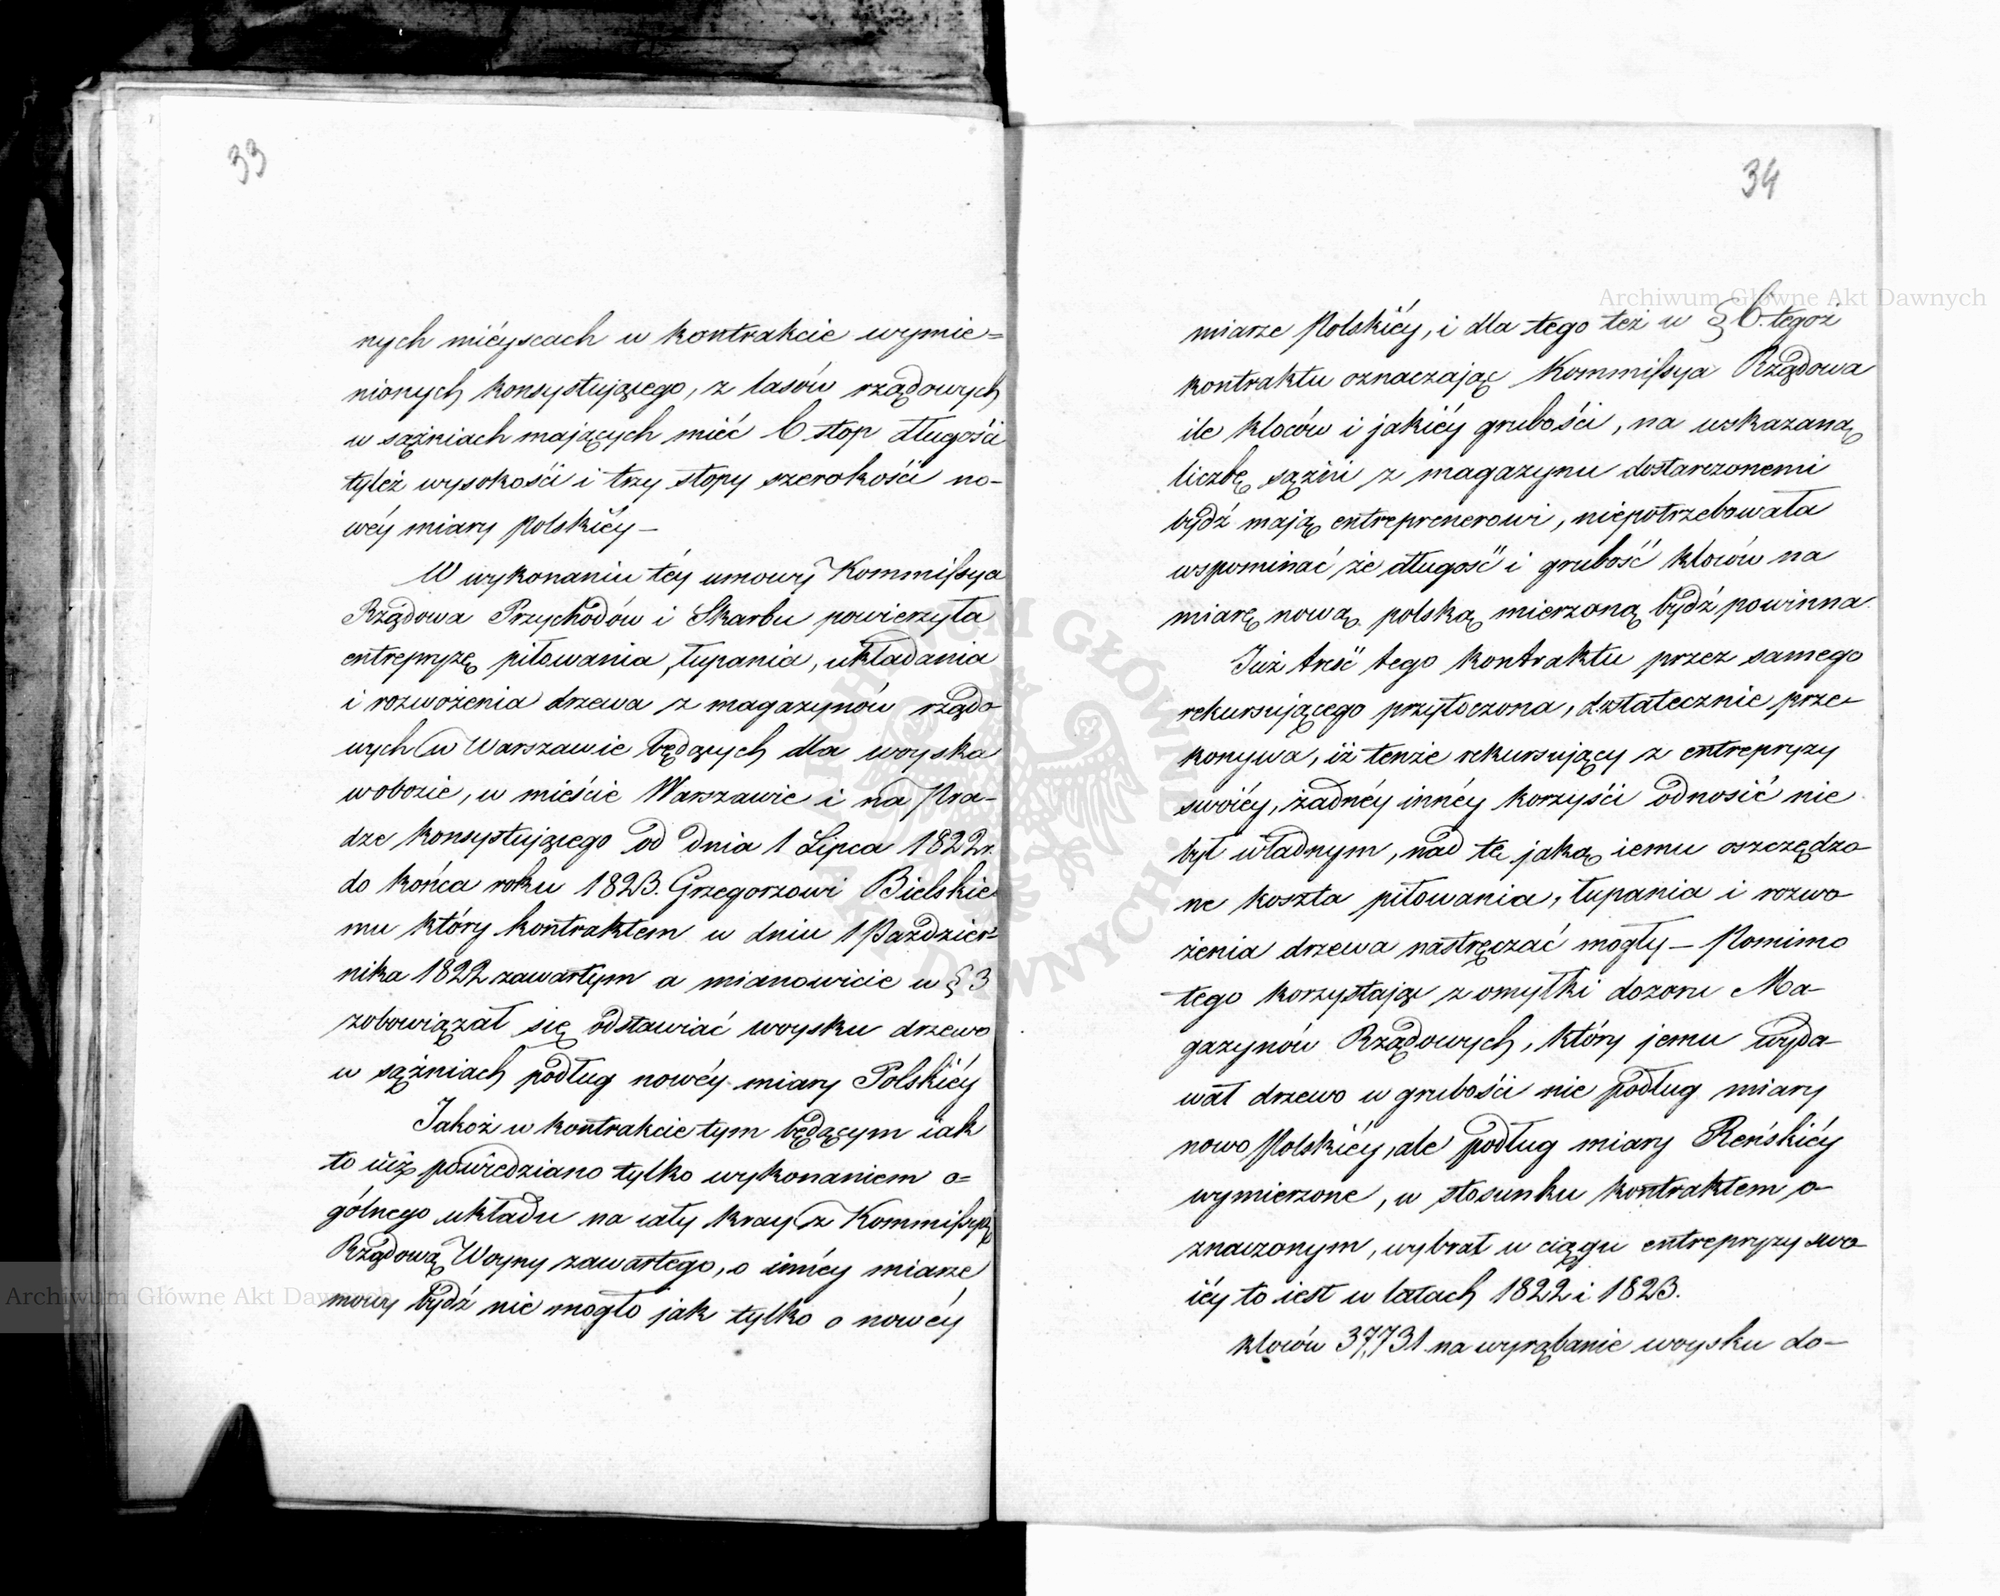 33
nych miéyscach w kontrakcie wymie=
nionych konsystuiącego, z lasów rządowych
w sążniach mających mieć 6 stop długości
tyleż wysokości i trzy stopy szerokości no-
wéy miary Polskiéy –
W wykonaniu téy umowy Kommissya
Rządowa Przychodów i Skarbu powierzyła
entrepryzę piłowania, łupania, układania
i rozwożenia drzewa z magazynów rządo
wych w Warszawie będących dla woyska
w obozie, w mieście Warszawie i na Pra-
dze konsystuiącego od dnia 1 Lipca 1822 r.
do końca roku 1823. Grzegorzowi Bielskie
mu który kontraktem w dniu 1 Paździer=
nika 1822 zawartym a mianowicie w § 3
zobowiązał się odstawiać woysku drzewo
w sążniach podług nowéy miary Polskiéy
Jakoż w kontrakcie tym będącym iak
to iuż powiedziano tylko wykonaniem o=
gólnego układu na cały kray z Kommissyą
Rządową Woyny zawartego, o innéy miarze
mowy bydź nie mogło jak tylko o nowéy
34
miarze Polskiéy, i dla tego też w § 6. tegoż
kontraktu oznaczając Kommissya Rządowa
ile kloców i jakiéy grubości, na wskazaną
liczbę sążni z magazynu dostarczonemi
bydź mają entreprenerowi, niepotrzebowała
wspominać że długość i grubość kloców na
miarę nową polską mierzoną bydź powinna.
Już treść tego kontraktu przez samego
rekursującego przytoczona, dostatecznie prze-
konywa, iż tenże rekursujący z entrepryzy
swoiéy, żadnéy innéy korzyści odnosić nie
był władnym, nad tę jaką iemu oszczędzo
ne koszta piłowania, łupania i rozwo
żenia drzewa nastręczać mogły – Pomimo
tego korzystając z omyłki dozoru Ma-
gazynów Rządowych, który jemu wyda-
wał drzewo w grubości nie podług miary
nowo Polskiéy, ale podług miary Reńskiéy
wymierzone, w stosunku kontraktem o-
znaczonym, wybrał w ciągu entrepryzy swo
iéy to iest w latach 1822 i 1823.
kloców 37,731 na wyrąbanie woysku do-
Archiwum Główne Akt Dawnych
Archiwum Główne Akt Dawnych
ARCHIWUM GŁÓWNE AKT DAWNYCH